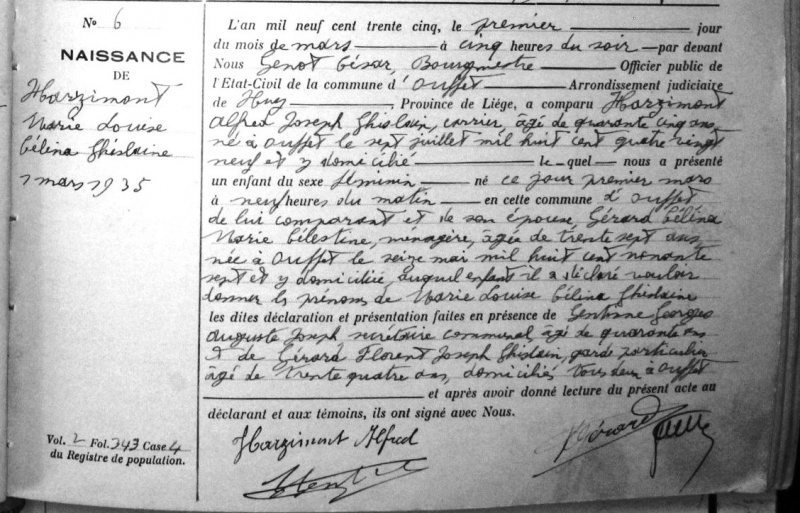 No 6
NAISSANCE
DE
Harzimont
Marie Louise
Célina Ghislaine
1 mars 1935
Vol. 2 Fol. 243 Case 4
du Registre de population.
L'an mil neuf cent trente cinq, le premier jour
du mois de mars à cinq heures du soir par devant
Nous Genot César, Bourgmestre Officier public de
l'Etat-Civil de la commune d'Ouffet Arrondissement judiciaire
de Huy, Province de Liége, a comparu Harzimont
Alfred Joseph Ghislain, carrier, âgé de quarante cinq ans
né à Ouffet le sept juillet mil huit cent quatre vingt
neuf et y domicilié le quel nous a présenté
un enfant du sexe féminin né ce jour premier mars
à neuf heures du matin en cette commune d'Ouffet
de lui comparant et de son épouse, Gérard Célina
Marie Célestine, ménagère, âgée de trente sept ans
née à Ouffet le seize mai mil huit cent nonante
sept et y domiciliée, auquel enfant il a déclaré vouloir
donner les prénoms de Marie Louise Célina Ghislaine
les dites déclaration et présentation faites en présence de Georges
Auguste Joseph secrétaire communal, âgé de quarante ans
& de Gérard Florent Joseph Ghislain, garde particulier
âgé de trente quatre ans, domiciliés tous deux à Ouffet
et après avoir donné lecture du présent acte au
déclarant et aux témoins, ils ont signé avec Nous.
Harzimont Alfred
Gérard